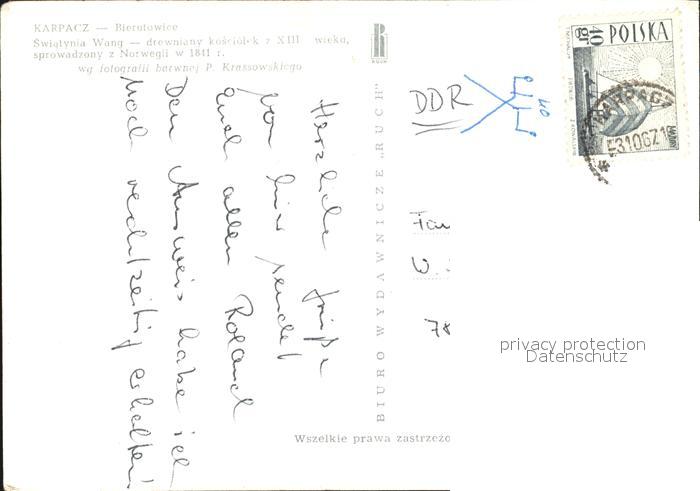 KARPACZ — Bierutowice
Świątynia Wang — drewniany kościółek z XIII wieku,
sprowadzony z Norwegii w 1841 r.
wg fotografii barwnej P. Krassowskiego
RUCH
Herzliche Grüße
von hier sendet
Euch allen Roland
Den Ausweis habe ich
noch rechtzeitig erhalten!
BIURO WYDAWNICZE „RUCH"
DDR
POLSKA
40 gr
KARPACZ
Fam
W.
78
privacy protection
Datenschutz
Wszelkie prawa zastrzeżo